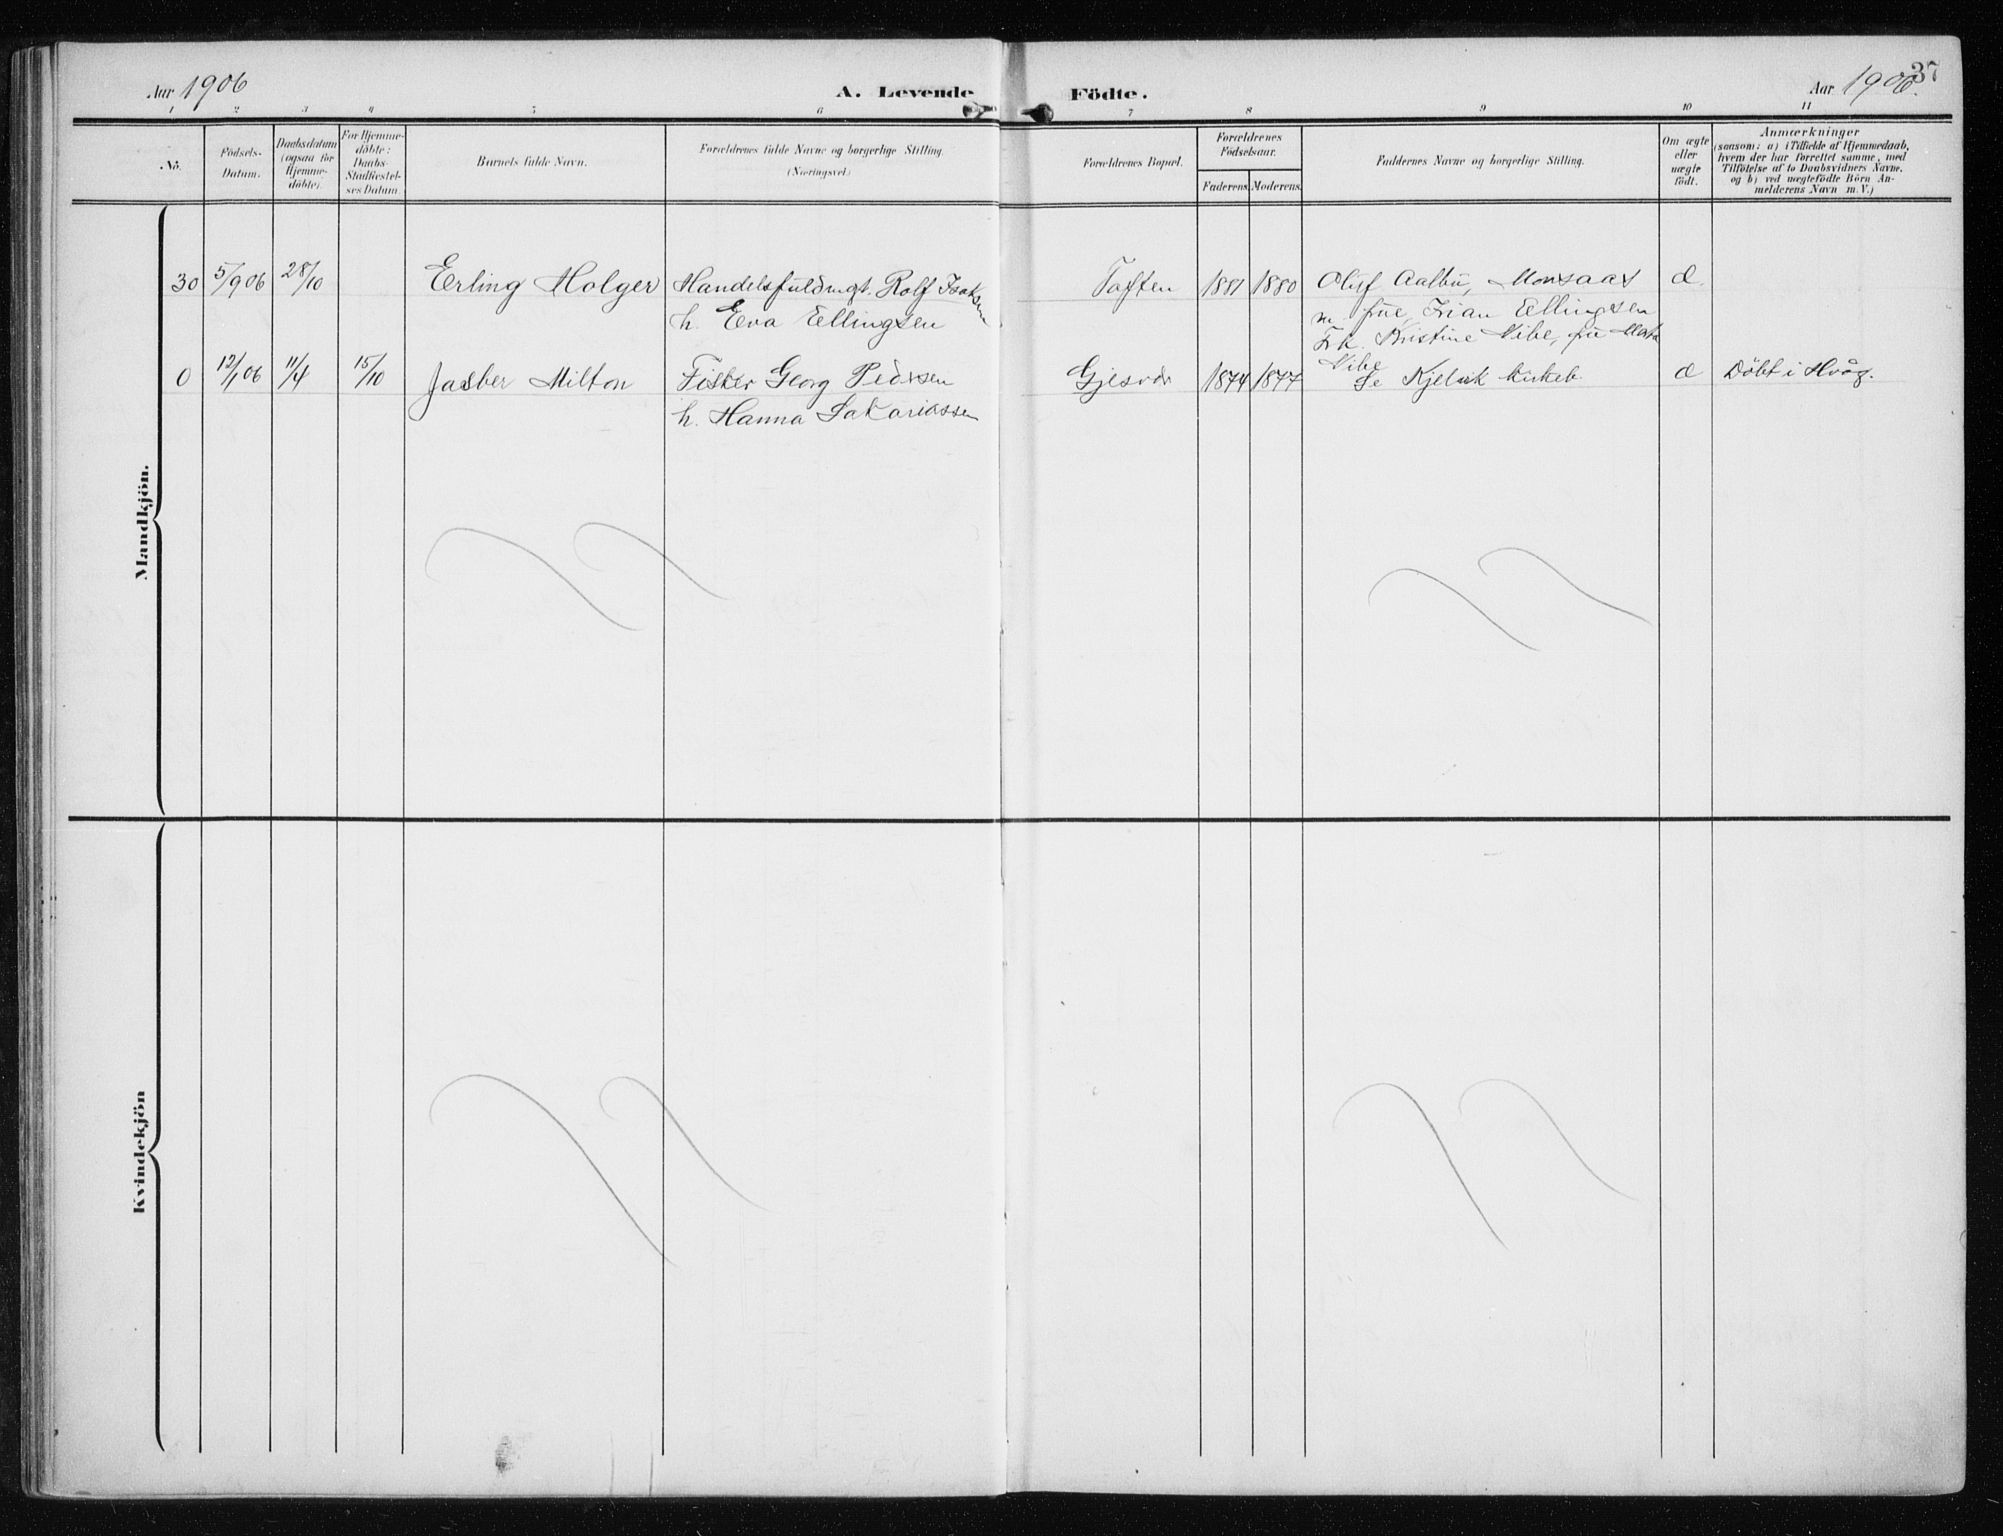 Aar 1906
A. Levende Födte.
Aar 1906.
37
1 2 3 4 5 6 7 8 9 10 11
No.
Födsels-Datum.
Daabsdatum (ogsaa för Hjemme-döbte).
For Hjemme-döbte: Daabs-Stadfæstel-ses Datum.
Barnets fulde Navn.
Forældrenes fulde Navne og borgerlige Stilling. (Næringsvei.)
Forældrenes Bopæl.
Forældrenes Födselsaar.
Faderens. Moderens.
Faddernes Navne og borgerlige Stilling.
Om ægte eller uægte födt.
Anmærkninger (saasom: a) i Tilfælde af Hjemmedaab, hvem der har forrettet samme, med Tilföielse af to Daabsvidners Navne, og b) ved uægtefödte Börn An-melderens Navn m. V.)
Mandkjön.
30 5/9 06 28/10 Erling Holger Handelsfuldmgt. Rolf Isaksen Toften 1881 1880 Oluf Aalbu, æ.
h. Eva Ellingsen m. frue, Ellingsen
Frk. Kristine Vibe, fru
Vibe
0 12/1 06 11/4 15/10 Jasber Milton Fisker Georg Pedersen Gjesvær 1874 1877 Se Kjelvik kirkeb. æ Döbt i Hvåg.
h. Hanna Sakariassen
Kvindekjön